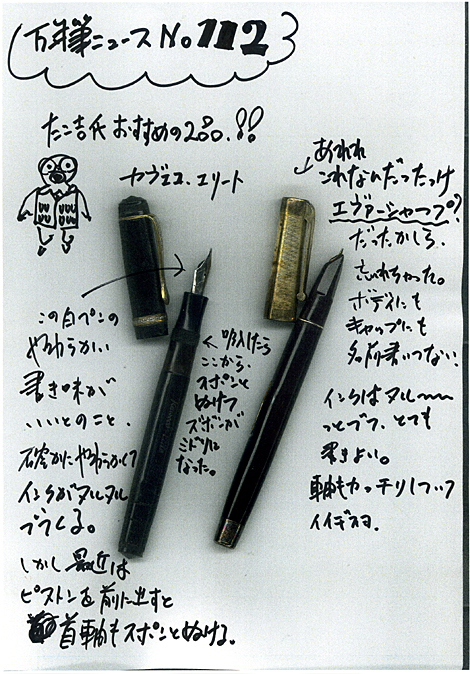 万年筆ニュース No 112
たこ吉氏 おすすめの2品!!
カヴェコ.エリート
この白ペンの
やわらかい
書き味が
いいとのこと.
確かにやわらかくて
インクがヌルヌル
でてくる。
しかし最近は
ピストンを前に出すと
首軸もスポンとぬける。
吸入したら
ここから.
スポンと
ぬけて
ズボンが
ミドリに
なった。
あれれ
これなんだったっけ
エヴァーシャープ?
だったかしら.
忘れちゃった。
ボディにも
キャップにも
名前書いてない.
インクはヌル〜〜
っとでて、とても
書きよい。
軸もカッチリしてて
イイデスヨ.